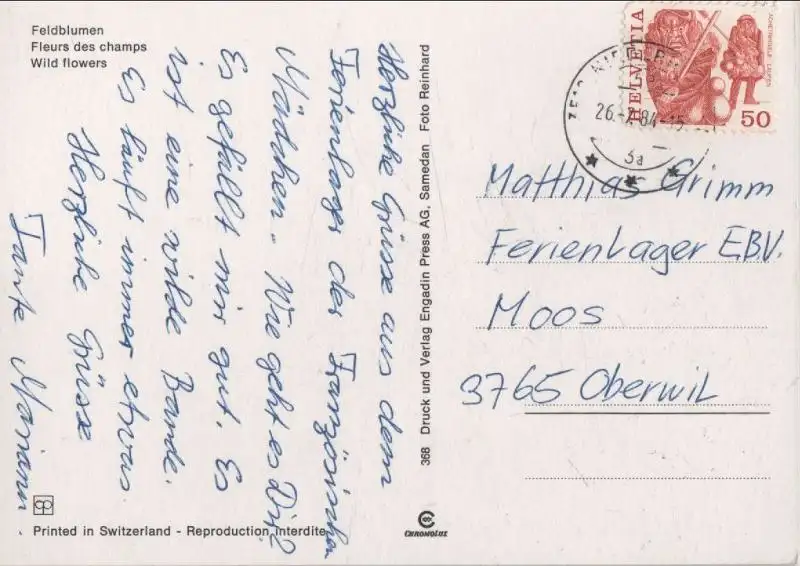 Feldblumen
Fleurs des champs
Wild flowers
Herzliche Grüsse aus dem
Ferienlager der Französischen
Mädchen. Wie geht es Dir?
Es gefällt mir gut. Es
ist eine wilde Bande.
Es läuft immer etwas.
Herzliche Grüsse
Tante Mariann.
Printed in Switzerland - Reproduction interdite
368 Druck und Verlag Engadin Press AG, Samedan Foto Reinhard
CHROMOLUX
HELVETIA
50
26.-7.84-15
3a
Matthias Grimm
Ferienlager EBV.
Moos
3765 Oberwil